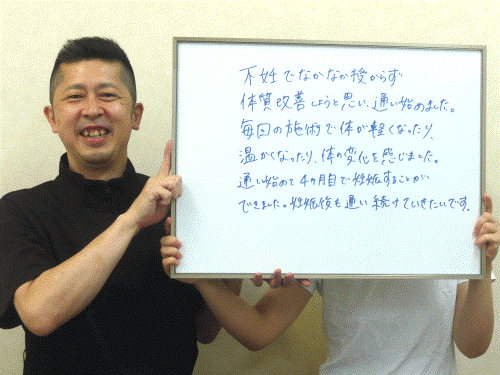 不妊でなかなか授からず
体質改善しようと思い、通い始めました。
毎回の施術で体が軽くなったり、
温かくなったり、体の変化を感じました。
通い始めて4ヶ月目で妊娠することが
できました。妊娠後も通い続けていきたいです。